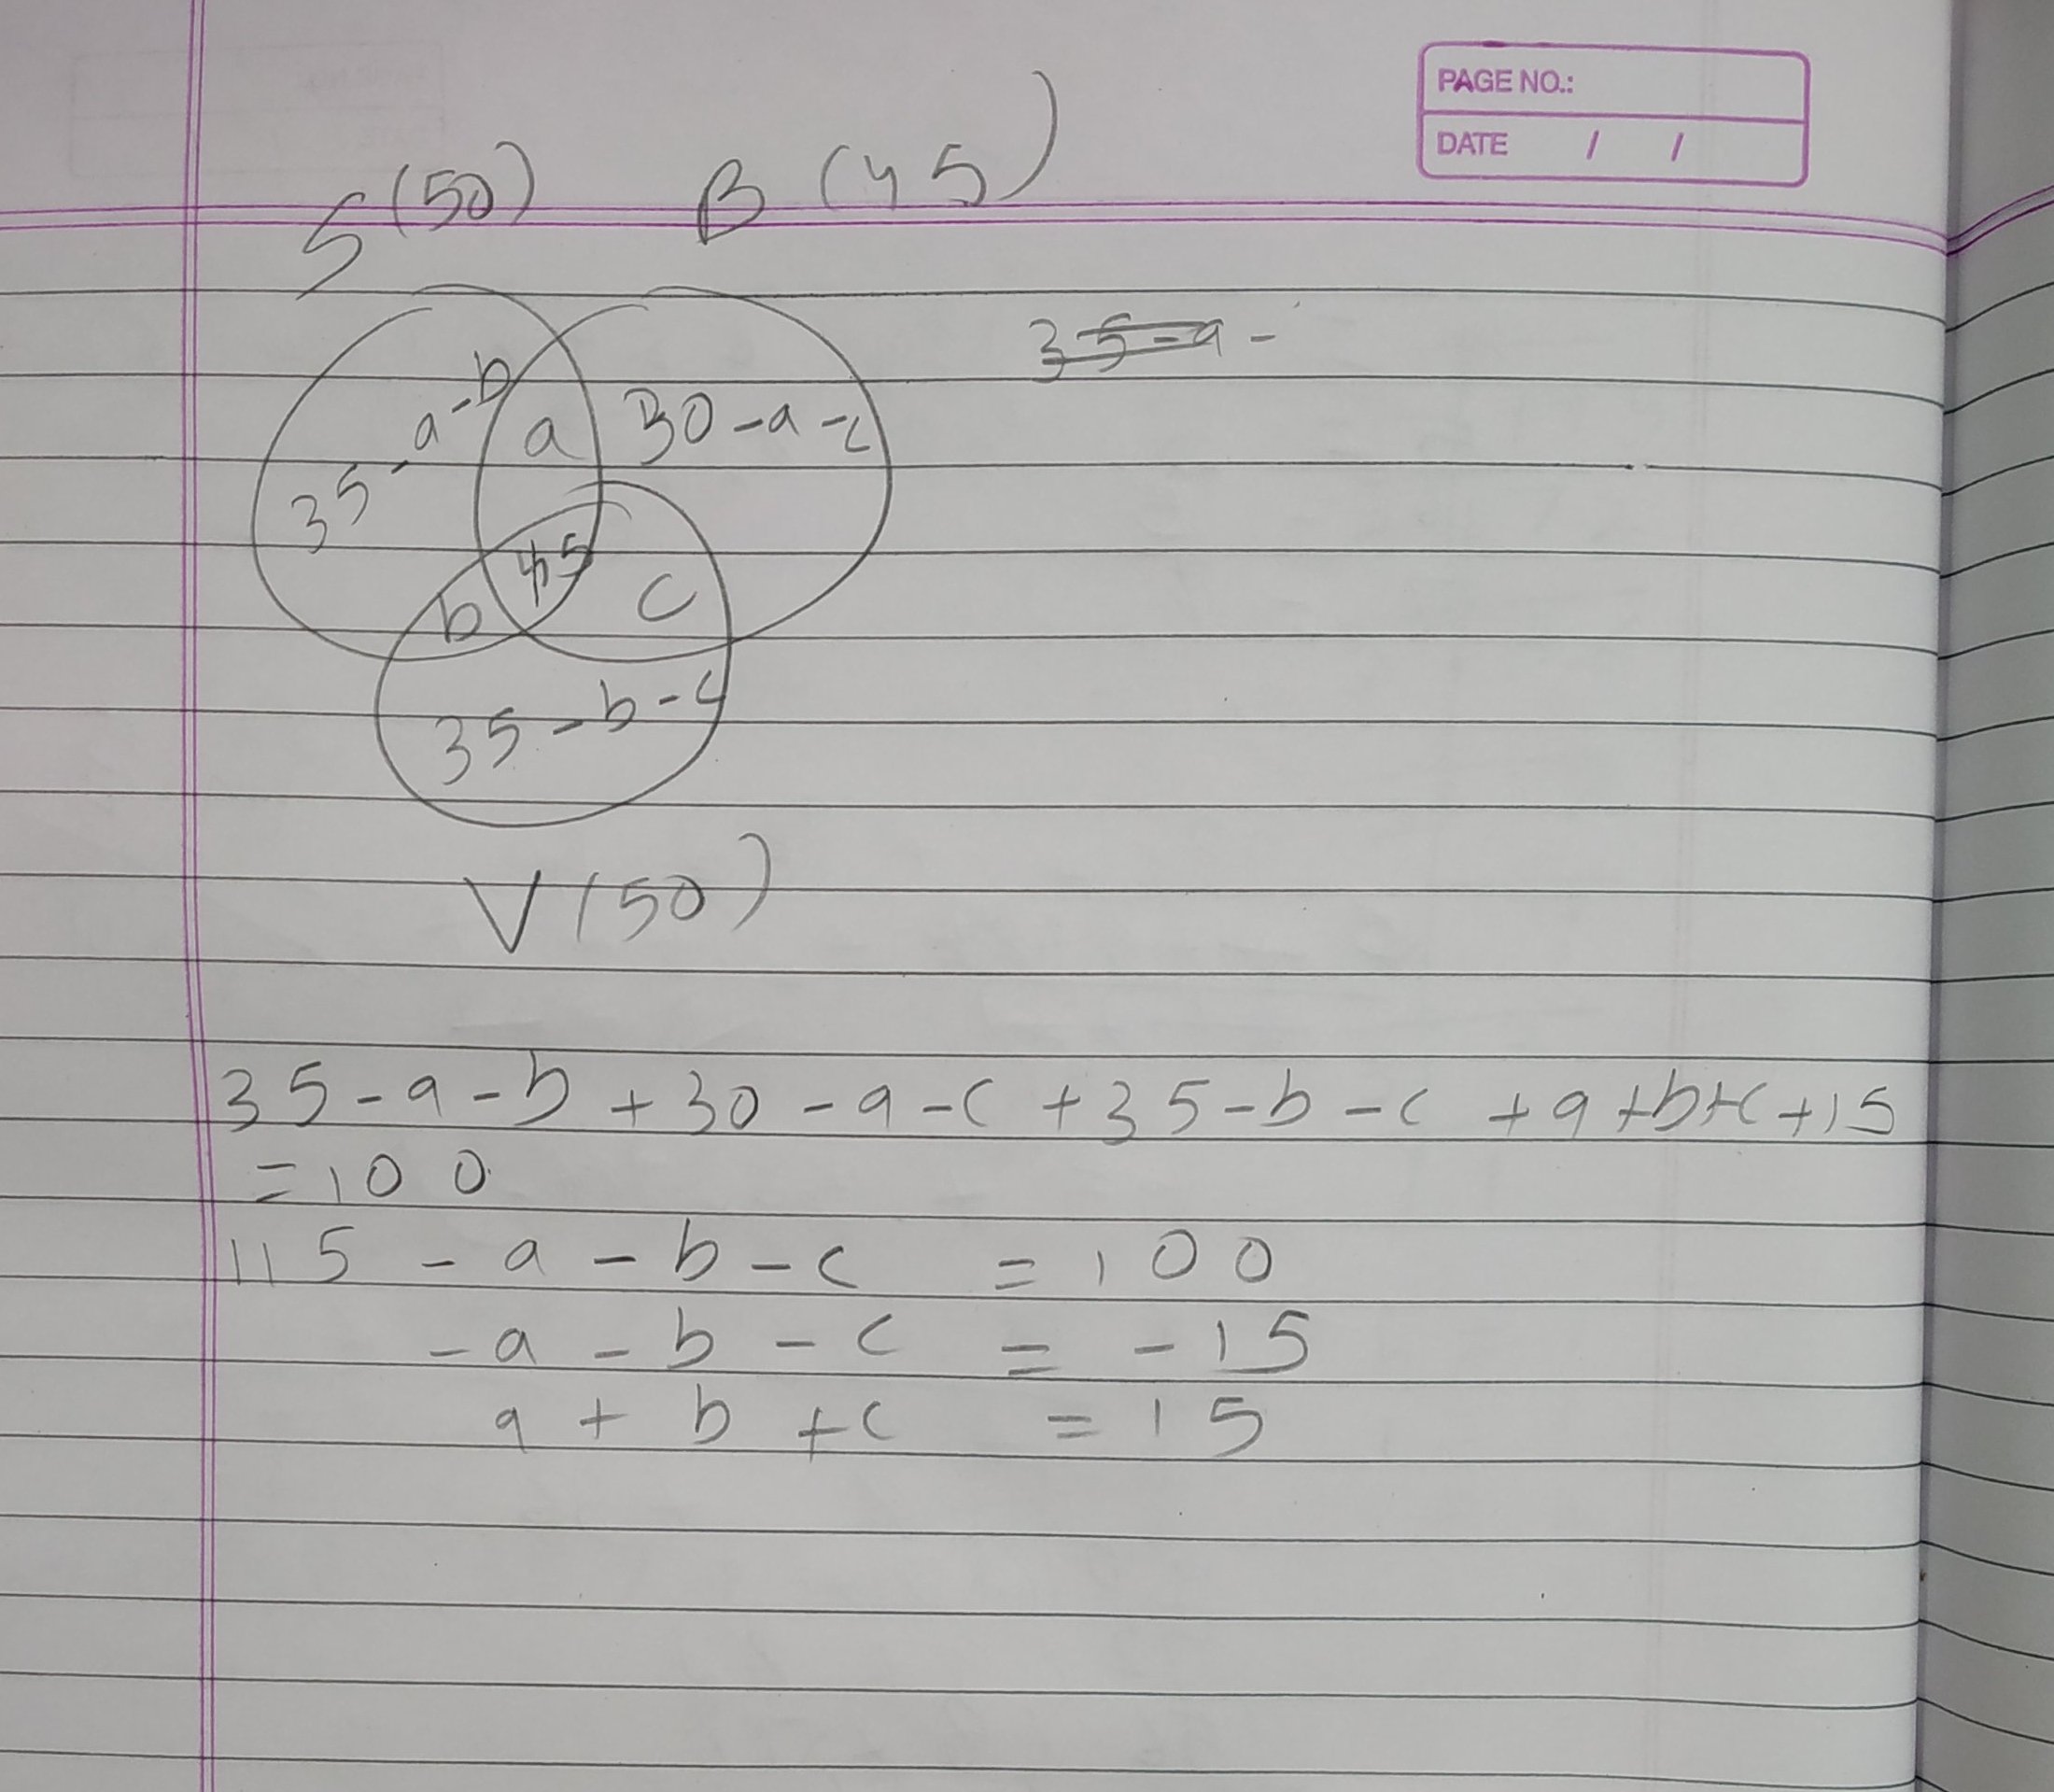 PAGE NO.:
DATE / /
S (50) B (45)
35-a -
35-a-b a 30-a-c
15
b c
35-b-c
V (50)
35-a-b+30-a-c+35-b-c+a+b+c+15
=100
115-a-b-c =100
-a-b-c = -15
a+b+c =15